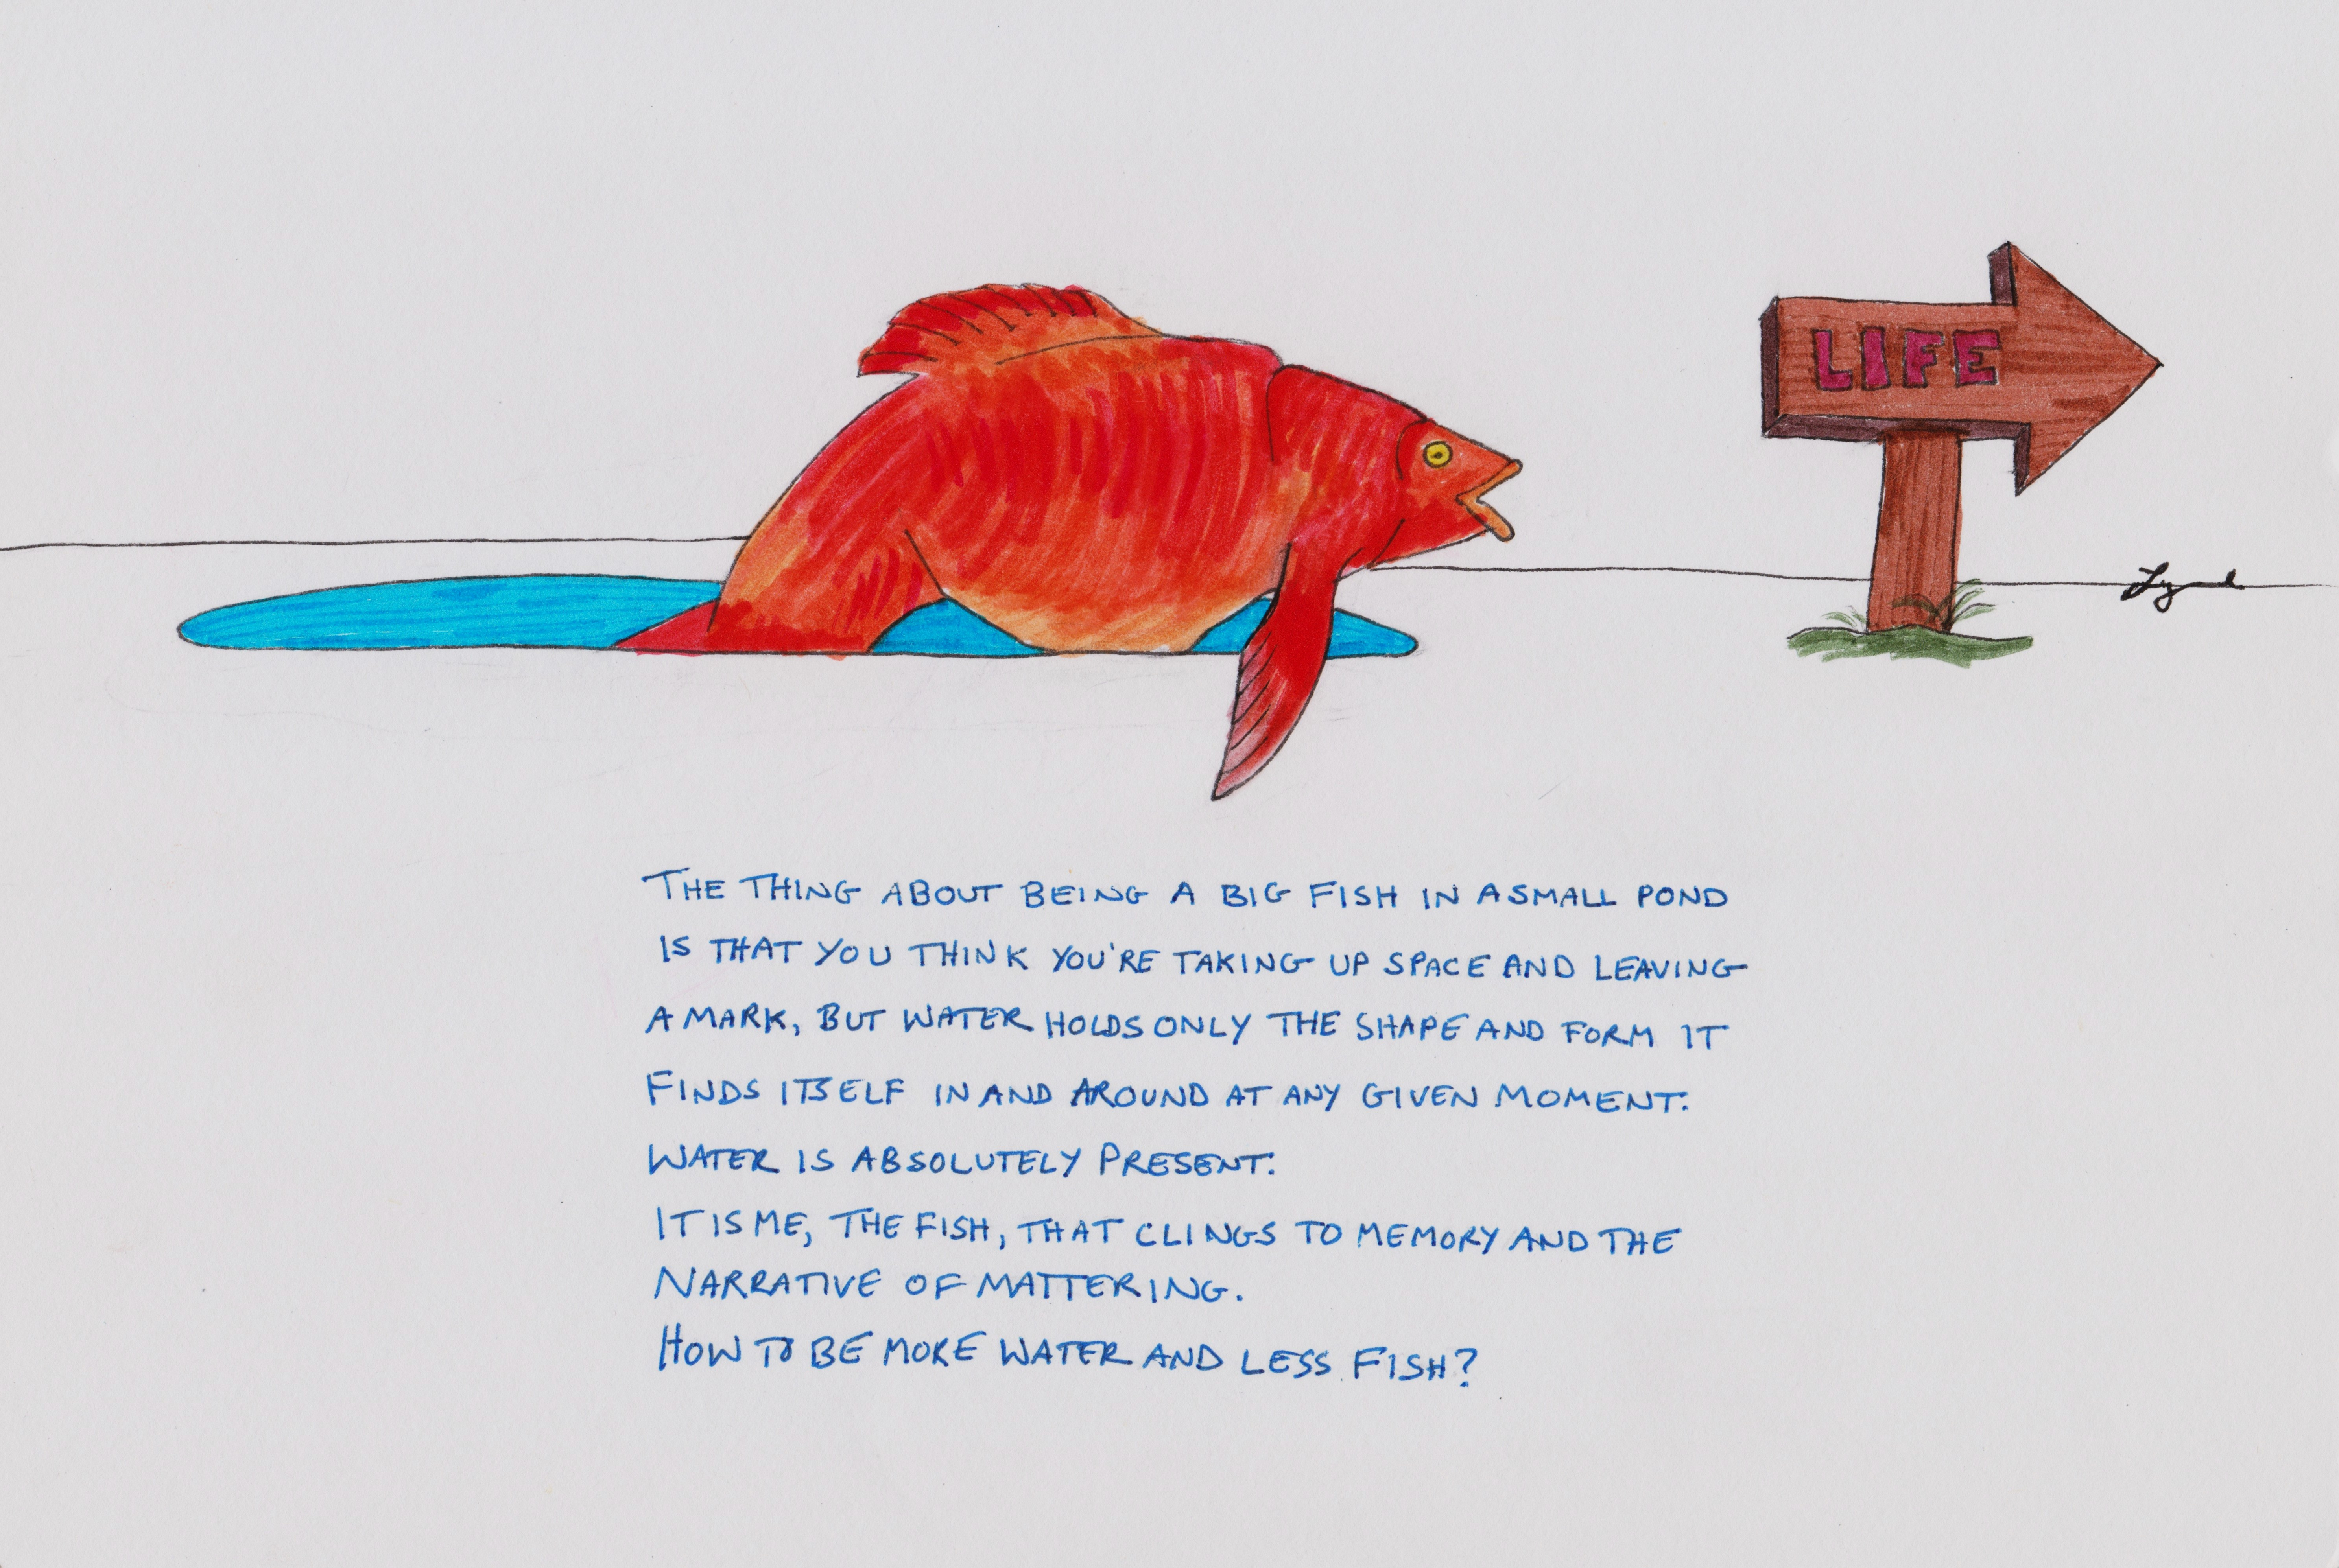 LIFE
THE THING ABOUT BEING A BIG FISH IN A SMALL POND
IS THAT YOU THINK YOU'RE TAKING UP SPACE AND LEAVING
A MARK, BUT WATER HOLDS ONLY THE SHAPE AND FORM IT
FINDS ITSELF IN AND AROUND AT ANY GIVEN MOMENT.
WATER IS ABSOLUTELY PRESENT.
IT IS ME, THE FISH, THAT CLINGS TO MEMORY AND THE
NARRATIVE OF MATTERING.
HOW TO BE MORE WATER AND LESS FISH?